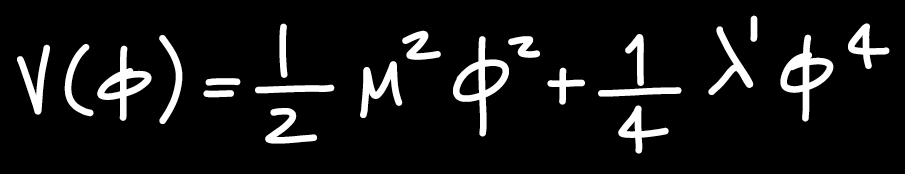 V(φ) = 1/2 μ² φ² + 1/4 λ' φ⁴